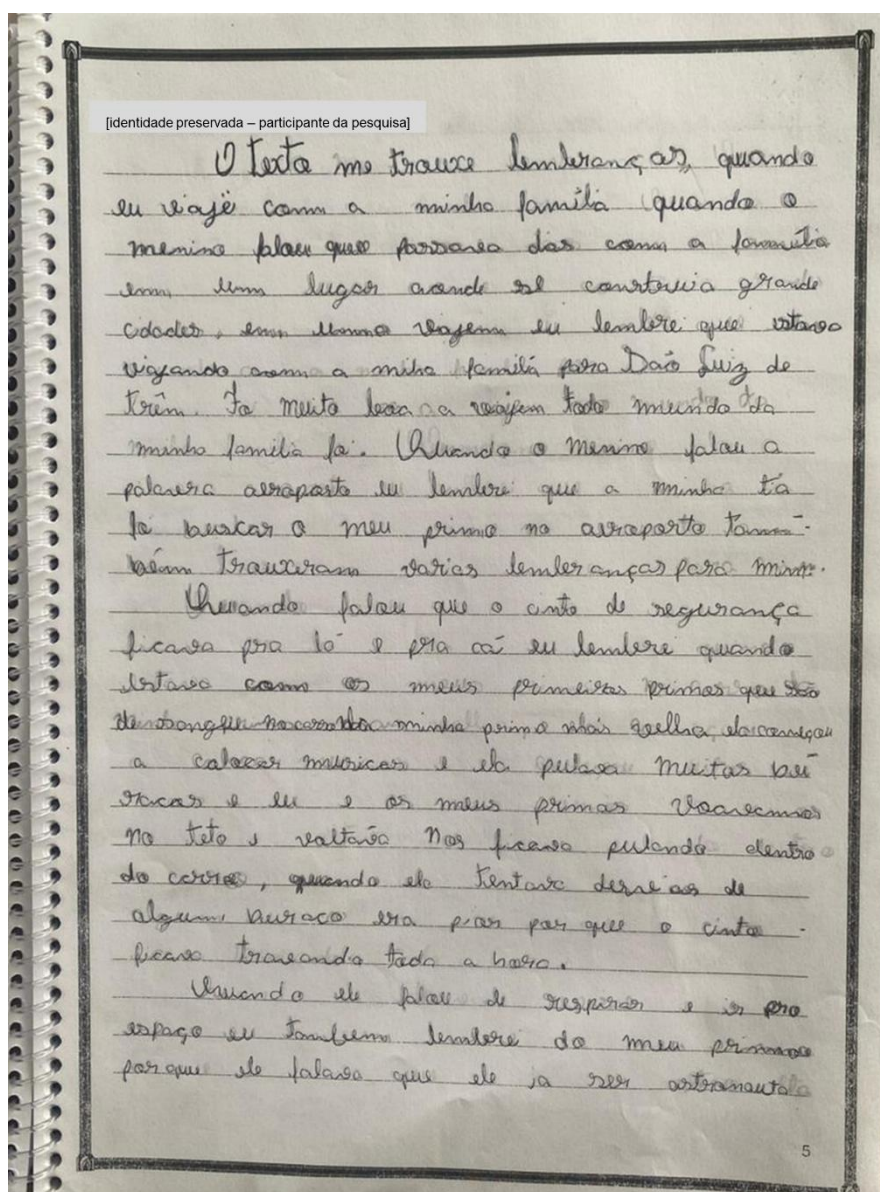 [identidade preservada – participante da pesquisa]
O texto me trouxe lembranças, quando
eu viajé com a minha família quando o
menino falou que passava dias com a família
em um lugar aonde se construia grande
cidades, em uma viajem eu lembrei que estava
viajando com a miha familá para São Luiz de
trêm. Fo muito boa a viajem todo mundo da
minha família fo. Quando o menino falou a
palavra aeroporto eu lembrei que a minha ta
fo buscar o meu primo no airoporto tam-
bém trouxeram varias lembranças para mim.
Quando falou que o cinto de segurança
ficava pra lá e pra cá eu lembre quando
estava com os meus primeiros primos que são
de sangue no carro da minha prima mais velha, ela começou
a colocar musicas e ela pulava muitas bu
racas e eu e os meus primos voavamos
no teto e voltava nos ficava pulando dentro
do carro, quando ela tentava desvias de
algum buraco era pior por que o cinto
ficava travando toda a hora.
Quando ele falou de respirar e ir pro
espaço eu tambem lembrei do meu primo
porque ele falava que ele ia ser astronauta
5